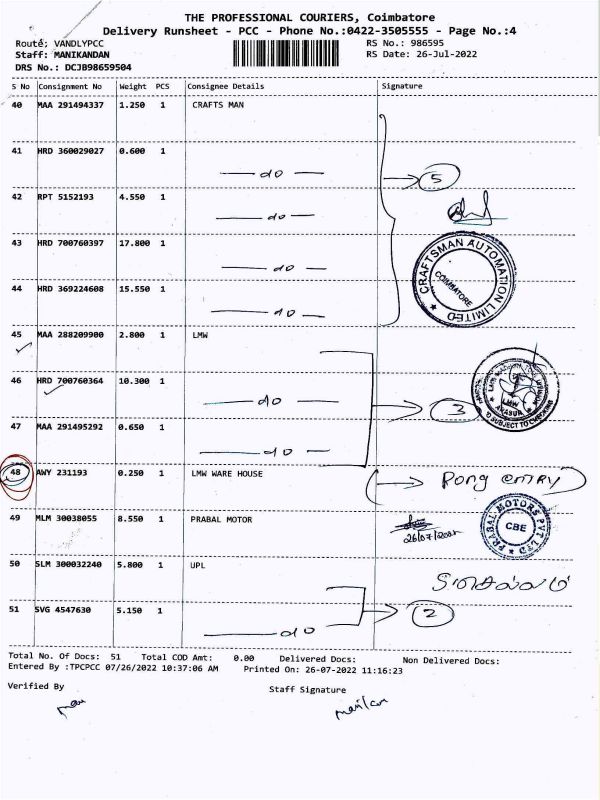 THE PROFESSIONAL COURIERS, Coimbatore
Delivery Runsheet - PCC - Phone No.:0422-3505555 - Page No.:4
Route: VANDLYPCC RS No.: 986595
Staff: MANIKANDAN RS Date: 26-Jul-2022
DRS No.: DCJB98659504
S No Consignment No Weight PCS Consignee Details Signature
40 MAA 291494337 1.250 1 CRAFTS MAN
41 HRD 360029027 0.600 1
— do —
5
42 RPT 5152193 4.550 1
— do —
43 HRD 700760397 17.800 1
— do —
CRAFTSMAN AUTOMATION LIMITED
COIMBATORE
44 HRD 369224608 15.550 1
— do —
45 MAA 288209900 2.800 1 LMW
46 HRD 700760364 10.300 1
— do —
3
LMW
SUBJECT TO CHECKING
47 MAA 291495292 0.650 1
— do —
48 AWY 231193 0.250 1 LMW WARE HOUSE
Rong entry
49 MLM 30038055 8.550 1 PRABAL MOTOR
PRABAL MOTORS PVT LTD
CBE
50 SLM 300032240 5.800 1 UPL
51 SVG 4547630 5.150 1
— do
2
Total No. Of Docs: 51 Total COD Amt: 0.00 Delivered Docs: Non Delivered Docs:
Entered By :TPCPCC 07/26/2022 10:37:06 AM Printed On: 26-07-2022 11:16:23
Verified By Staff Signature